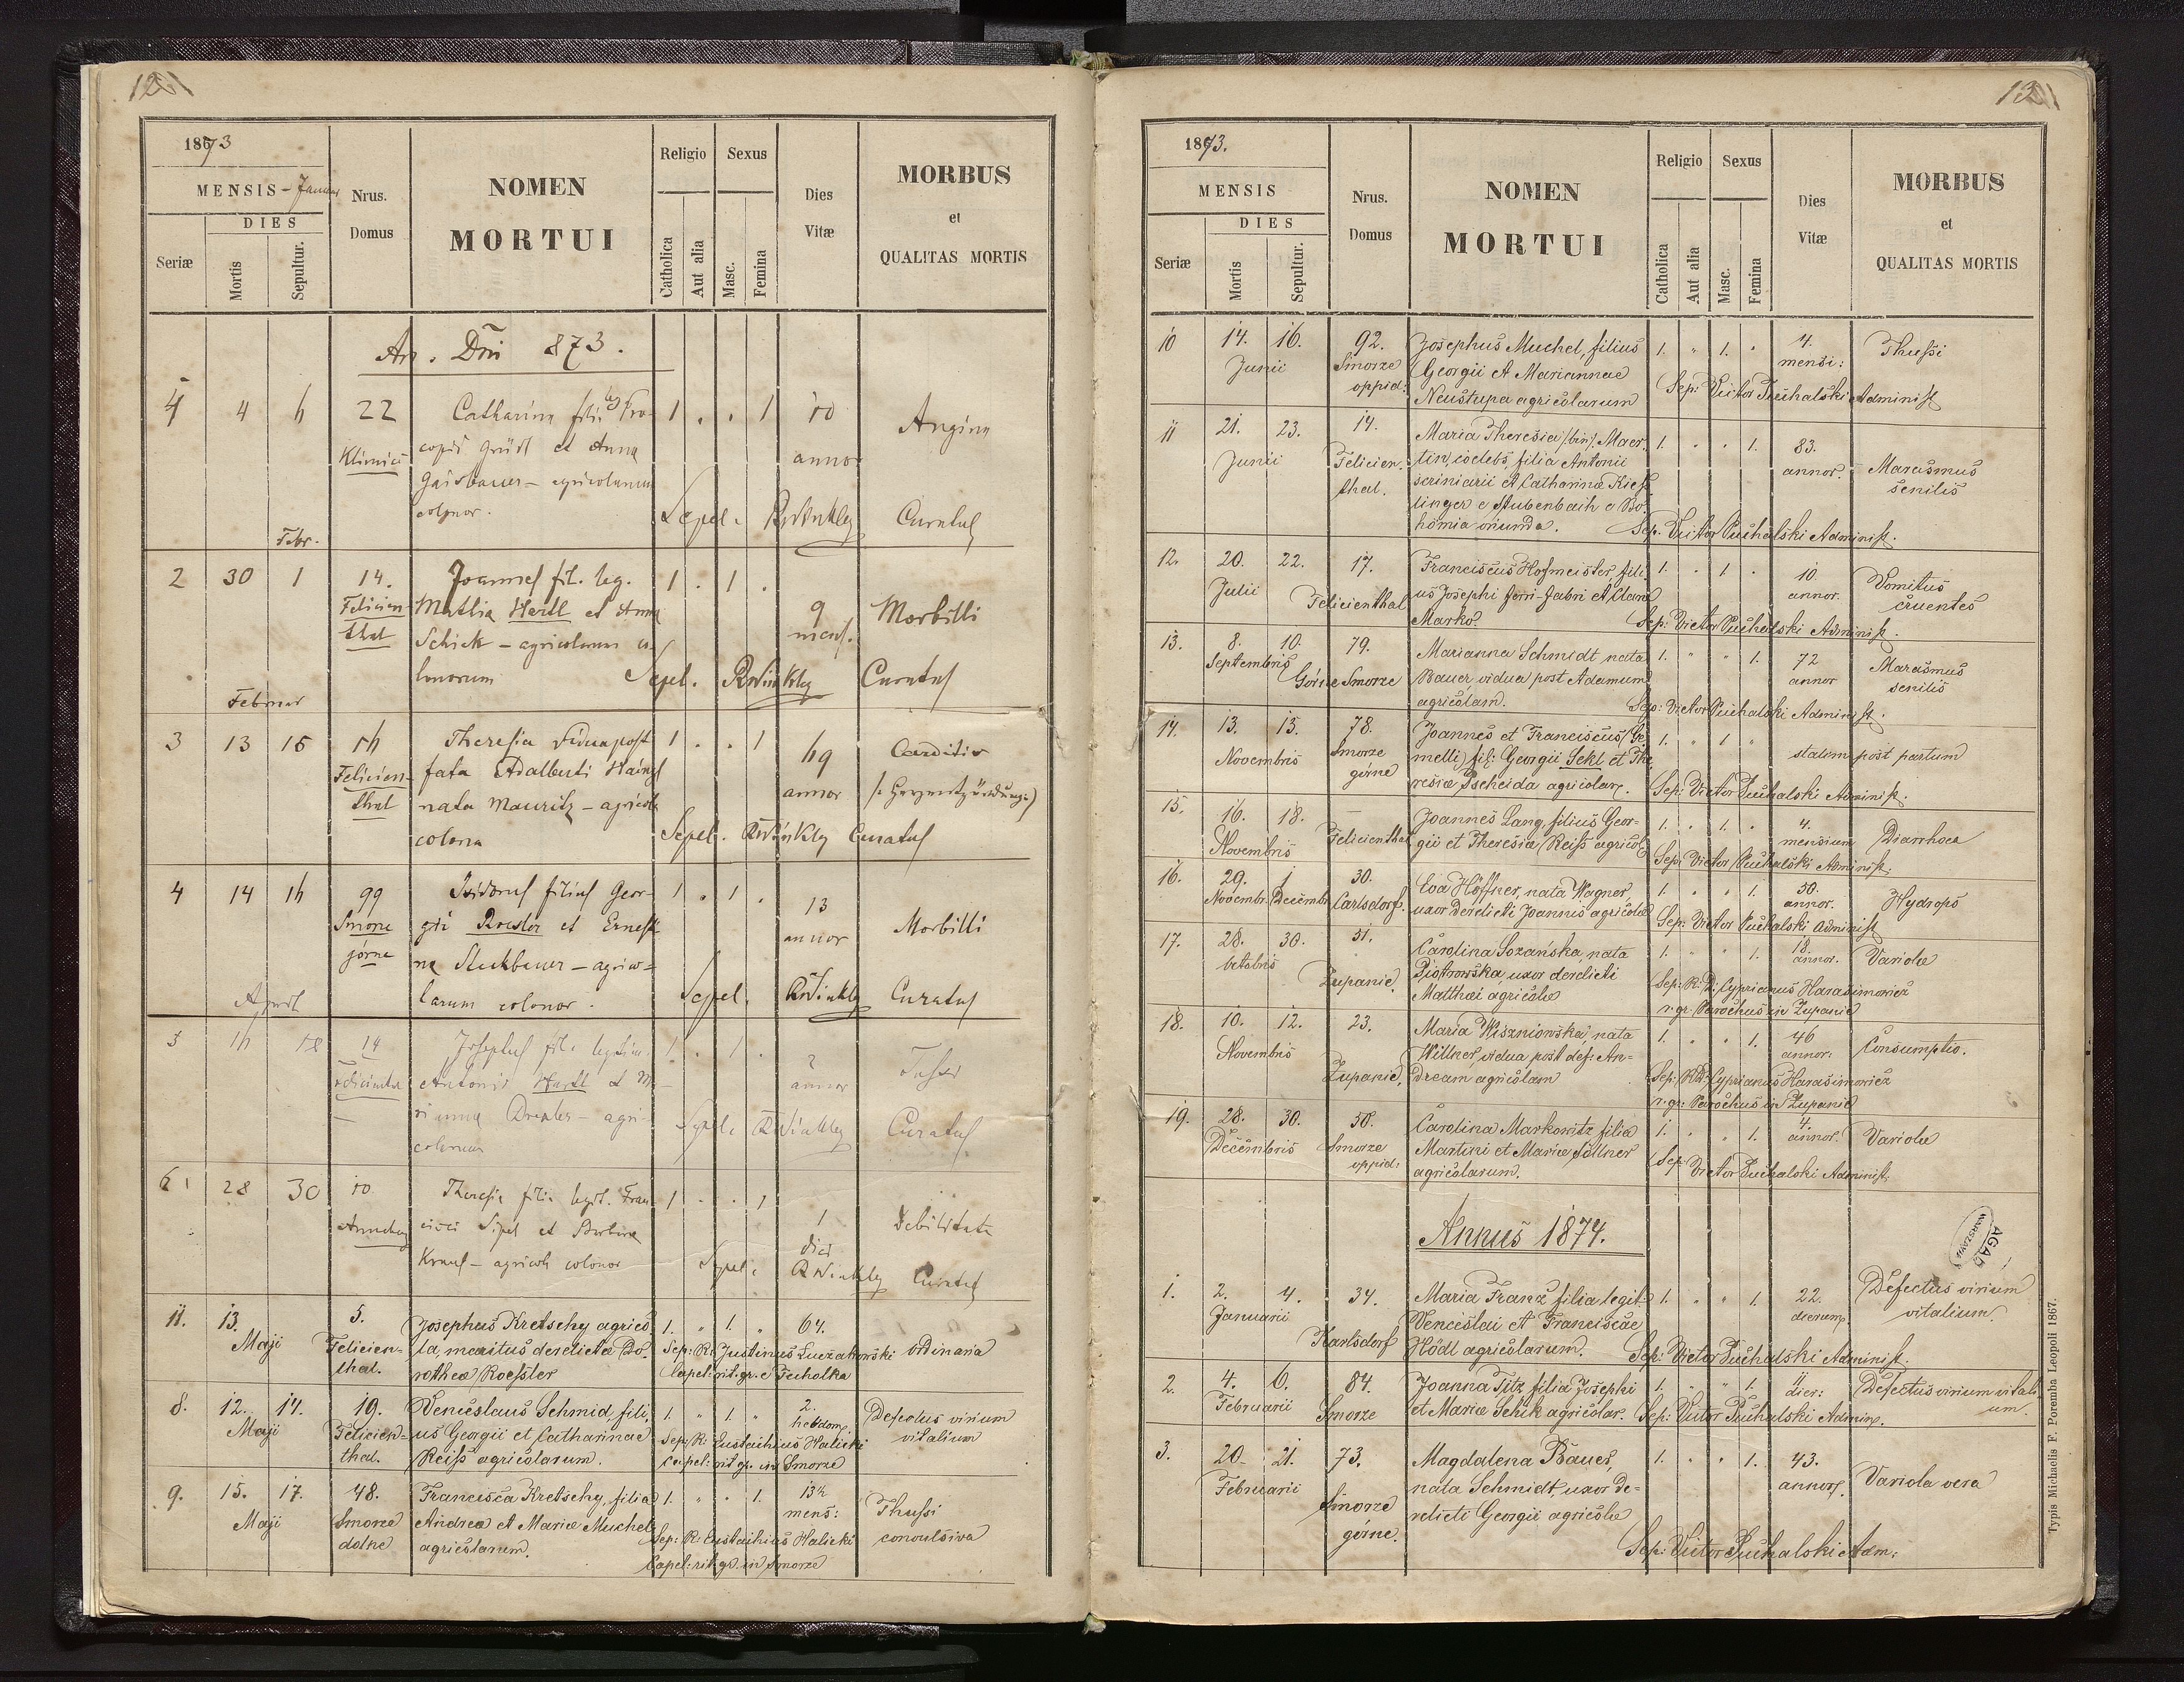 12
1873
MENSIS - Januar
DIES
Seriæ
Mortis
Sepultur.
Nrus.
Domus
NOMEN
MORTUI
Religio
Sexus
Catholica
Aut alia
Masc.
Femina
Dies
Vitæ
MORBUS
et
QUALITAS MORTIS
An. Dni 873.
4 4 22 Catharina 1 . . 1 10 Angina
Klimiec et Anna annor
agricolarum
colonor.
Sepel. RWinkley Curatus
Febr.
2 30 1 14. Joannes fil. leg. 1 . 1 .
Felicien Mathia Hartl et Anna 9 Morbilli
thal Schick – agricolarum co mens.
lonorum Sepel. RWinkley Curatus
Februar
3 13 15 Theresia vidua post 1 . . 1 Carditis
Felicien- fata Adalberti annor
thal nata Mauritz – agricol
colona Sepel. RWinkley Curatus
4 14 99 Isidorus filius Geor- 1 . 1 . 13
Smorze gii et Ernest annor Morbilli
górne na – agrico-
larum colonor. Sepel. RWinkley Curatus
April
18 14 Josephus fil. legitim. 1 . 1 . 2
Antonii Hartl et Ma annor
rianna – agri-
colarum Sepel. RWinkley Curatus
6 28 30 10 Theresia filia legit. Fran 1 . . 1
Annaberg cisci et Barbara 1 Debilitate
Kraus – agricol colonor dies
Sepel. RWinkley Curatus
11. 13. 5. Josephus Kretschy agrico 1. " 1. " 64.
Maji Felicien= la, maritus derelicta Do- Sep: R: Justinus Luczakowski ordinaria
thal. rothea Roessler Capel: rit. gr. e Tucholka
8. 12. 14. 19. Venceslaus Schmid, fili, 1. " 1. " 2. Defectus virium
Maji Felicien= us Georgii et Catharinae hebdom. vitalium
thal. Reiss agricolarum. Sep: R: Eustachius Halicki
Capel: rit. gr. in Smorze
9. 15. 17. 48. Francisca Kretschy, filia 1. " " 1. 13½ Thussi
Maji Smorze Andrea et Mariæ Muchel mens: convulsiva
dolne agricolarum. Sep: R: Eustachius Halicki
Capel: rit. gr. in Smorze
13
1873.
MENSIS
DIES
Seriæ
Mortis
Sepultur.
Nrus.
Domus
NOMEN
MORTUI
Religio
Sexus
Catholica
Aut alia
Masc.
Femina
Dies
Vitæ
MORBUS
et
QUALITAS MORTIS
10 14. 16. 92. Josephus Muchel, filius 1. " 1. " 4. Thussi
Junii Smorze Georgii et Mariannae mensi:
oppid: Neustupa agricolarum Sep: Victor Puchalski Administ
11 21. 23. 14. Maria Theresia (bin.) Maer- 1. " " 1. 83.
Junii Felicien- tin, coelebs, filia Antonii annor. Marasmus
thal. scriniarii et Catharinæ Kies senilis
linger e Stubenbach e Bo-
hemia oriunda. Sep: Victor Puchalski Administ.
12. 20. 22. 17. Franciscus Hofmeister, fili- 1. " 1. " 10. Vomitus
Julii Felicienthal us Josephi ferri-fabri et Clara annor. cruentes
Marko. Sep: Victor Puchalski Administ.
13. 8. 10. 79. Marianna Schmidt nata 1. " " 1. 72 Marasmus
Septembris Górne Smorze Bauer vidua post Adamum annor senilis
agricolam. Sep: Victor Puchalski Administ.
14. 13. 15. 78. Joannes et Franciscus (Ge- 1. " 1 "
Novembris Smorze melli) fil: Georgii Sekl et The statim post partum
górne resiæ Pscheida agricolar. Sep: Victor Puchalski Administ.
15. 16. 18. — Joannes Lang, filius Geor- 1. " 1. " 4. Diarrhoea
Novembris Felicienthal gii et Theresia Reiss agricol. mensium
Sep: Victor Puchalski Administ.
16. 29. 1 30. Eva Höffner, nata Wagner, 1. " " 1. 50. Hydrops
Novembr. Decembr. Carlsdorf. uxor derelicti Joannis agricolæ annor.
Sep: Victor Puchalski Administ
17. 28. 30. 51. Carolina Sozańska, nata 1. " " 1. 18. Variolæ
octobris Zupanie. Piotrowska, uxor derelicti annor.
Matthæi agricolæ Sep: R: D: Cyprianus Harasimowicz
r. gr. Parochus in Zupanie
18. 10. 12. 23. Maria Wiszniowska, nata 1. " " 1. 46 Consumptio.
Novembris Willner, vidua post def: An= annor:
Zupanie, dream agricolam Sep: R: D: Cyprianus Harasimowicz
r. gr: Parochus in Zupanie
19. 28. 30. 50. Carolina Markowitz filia 1. " " 1. 4. Variolæ
Decembris Smorze Martini et Mariæ Söllner annor.
oppid: agricolarum. Sep: Victor Puchalski Administ.
Annus 1874.
AGAD
WARSZAWA
1. 2. 4. 34. Maria Franz filia legit- 1. " " 1. 22. Defectus virium
Januarii Karlsdorf Venceslai et Franciscae dierum vitalium.
Hödl agricolarum. Sep: Victor Puchalski Administ.
2. 4. 6. 84. Joanna Titz filia Josephi 1. " " 1. 11 Defectus virium vitali
Februarii Smorze et Mariæ Schik agricolar. dier: um.
Sep: Victor Puchalski Admin.
3. 20 21. 73. Magdalena Bauer, 1. " " 1. 43. Variola vera
Februarii Smorze nata Schmidt uxor de- annor.
górne. relicti Georgii agricolæ
Sep: Victor Puchalski Adm:
Typis Michaelis F. Poremba Leopoli 1867.